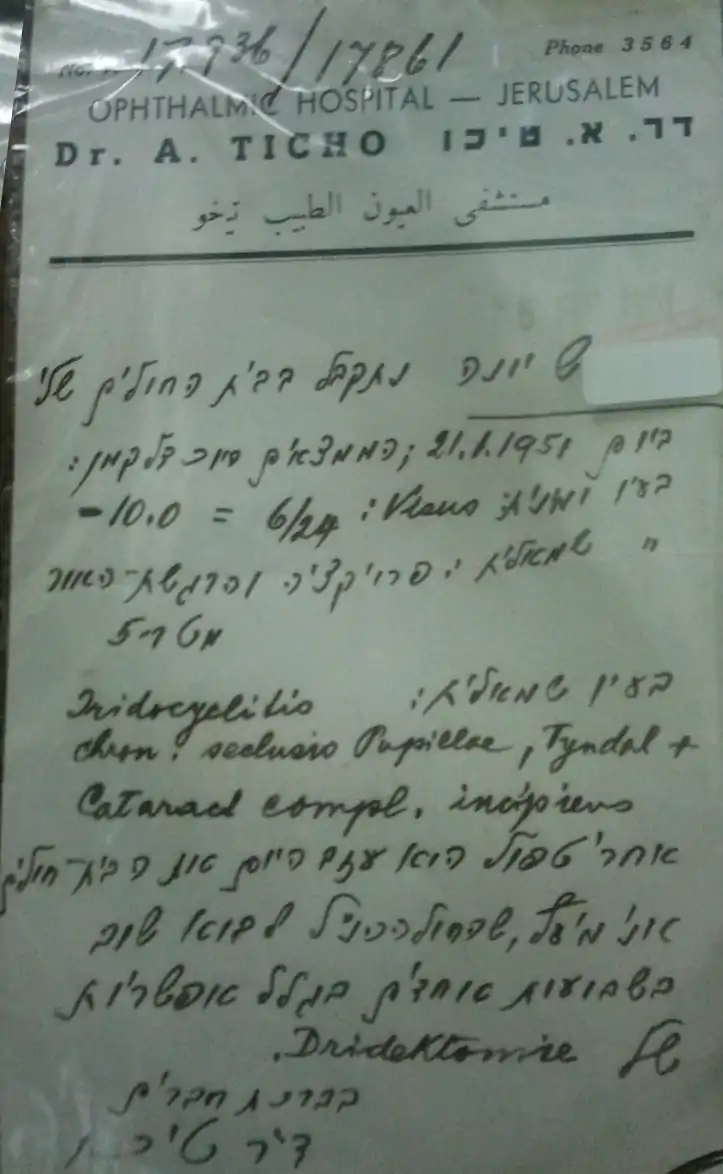 17936/17861
Phone 3564
OPHTHALMIC HOSPITAL — JERUSALEM
Dr. A. TICHO דר. א. טיכו
مستشفى العيون الطبيب تيخو
יונה נתקבל בבית החולים שלי
ביום 21.1.1951; הממצאים דלקמן:
בעין ימנית: Visus: 6/24 = -10.0
" שמאלית: פרויקציה והרגשת-האור
מטר 5
בעין שמאלית: Iridocyclitis
chron: seclusio Pupillae, Tyndal +
Cataract compl. incipiens
אחרי טפול הוא עזב היום את הבית-חולים
אני מיעץ, שהחולה הנ"ל יבוא שוב
בשבועות אחדים בגלל אפשרות
של Iridektomie.
בברכת חברים
ד"ר טיכו